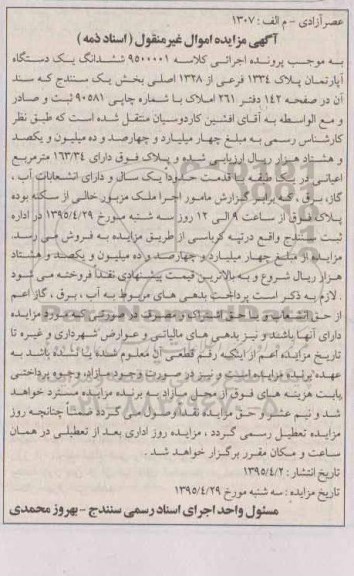 عصر آزادی - م الف : ۱۳۰۷
آگهی مزایده اموال غیر منقول (اسناد ذمه)
به موجب پرونده اجرائی کلاسه ۹۵۰۰۰۰۱ ششدانگ یک دستگاه
آپارتمان پلاک ۱۳۳۴ فرعی از ۱۳۲۸ اصلی بخش یک سنندج که سند
آن در صفحه ۱۴۲ دفتر ۲۶۱ املاک با شماره چاپی ۹۰۵۸۱ ثبت و صادر
و مع الواسطه به آقای افشین کاردوسیان منتقل شده است که طبق نظر
کارشناس رسمی به مبلغ چهار میلیارد و چهارصد و ده میلیون و یکصد
و هشتاد هزار ریال ارزیابی شده و پلاک فوق دارای ۱۶۳/۳۴ مترمربع
اعیانی در یک طبقه با قدمت حدوداً یک سال و دارای انشعابات آب ،
گاز، برق ، که برابر گزارش مامور اجرا ملک مزبور خالی از سکنه بوده
پلاک فوق از ساعت ۹ الی ۱۲ روز سه شنبه مورخ ۱۳۹۵/۴/۲۹ در اداره
ثبت سنندج واقع در تپه کرباسی از طریق مزایده به فروش می رسد.
مزایده از مبلغ چهار میلیارد و چهارصد و ده میلیون و یکصد و هشتاد
هزار ریال شروع و به بالاترین قیمت پیشنهادی نقداً فروخته می شود
. لازم به ذکر است پرداخت بدهی های مربوط به آب ، برق ، گاز اعم
از حق انشعاب و یا حق اشتراک و مصرف در صورتی که مورد مزایده
دارای آنها باشد و نیز بدهی های مالیاتی و عوارض شهرداری و غیره تا
تاریخ مزایده اعم از اینکه رقم قطعی آن معلوم شده یا نشده باشد به
عهده برنده مزایده است و نیز در صورت وجود مازاد، وجوه پرداختی
بابت هزینه های فوق از محل مازاد به برنده مزایده مسترد خواهد
شد و نیم عشر و حق مزایده نقداً وصول می گردد ضمناً چنانچه روز
مزایده تعطیل رسمی گردد ، مزایده روز اداری بعد از تعطیلی در همان
ساعت و مکان مقرر برگزار خواهد شد .
تاریخ انتشار : ۱۳۹۵/۴/۲
تاریخ مزایده : سه شنبه مورخ ۱۳۹۵/۴/۲۹
مسئول واحد اجرای اسناد رسمی سنندج - بهروز محمدی